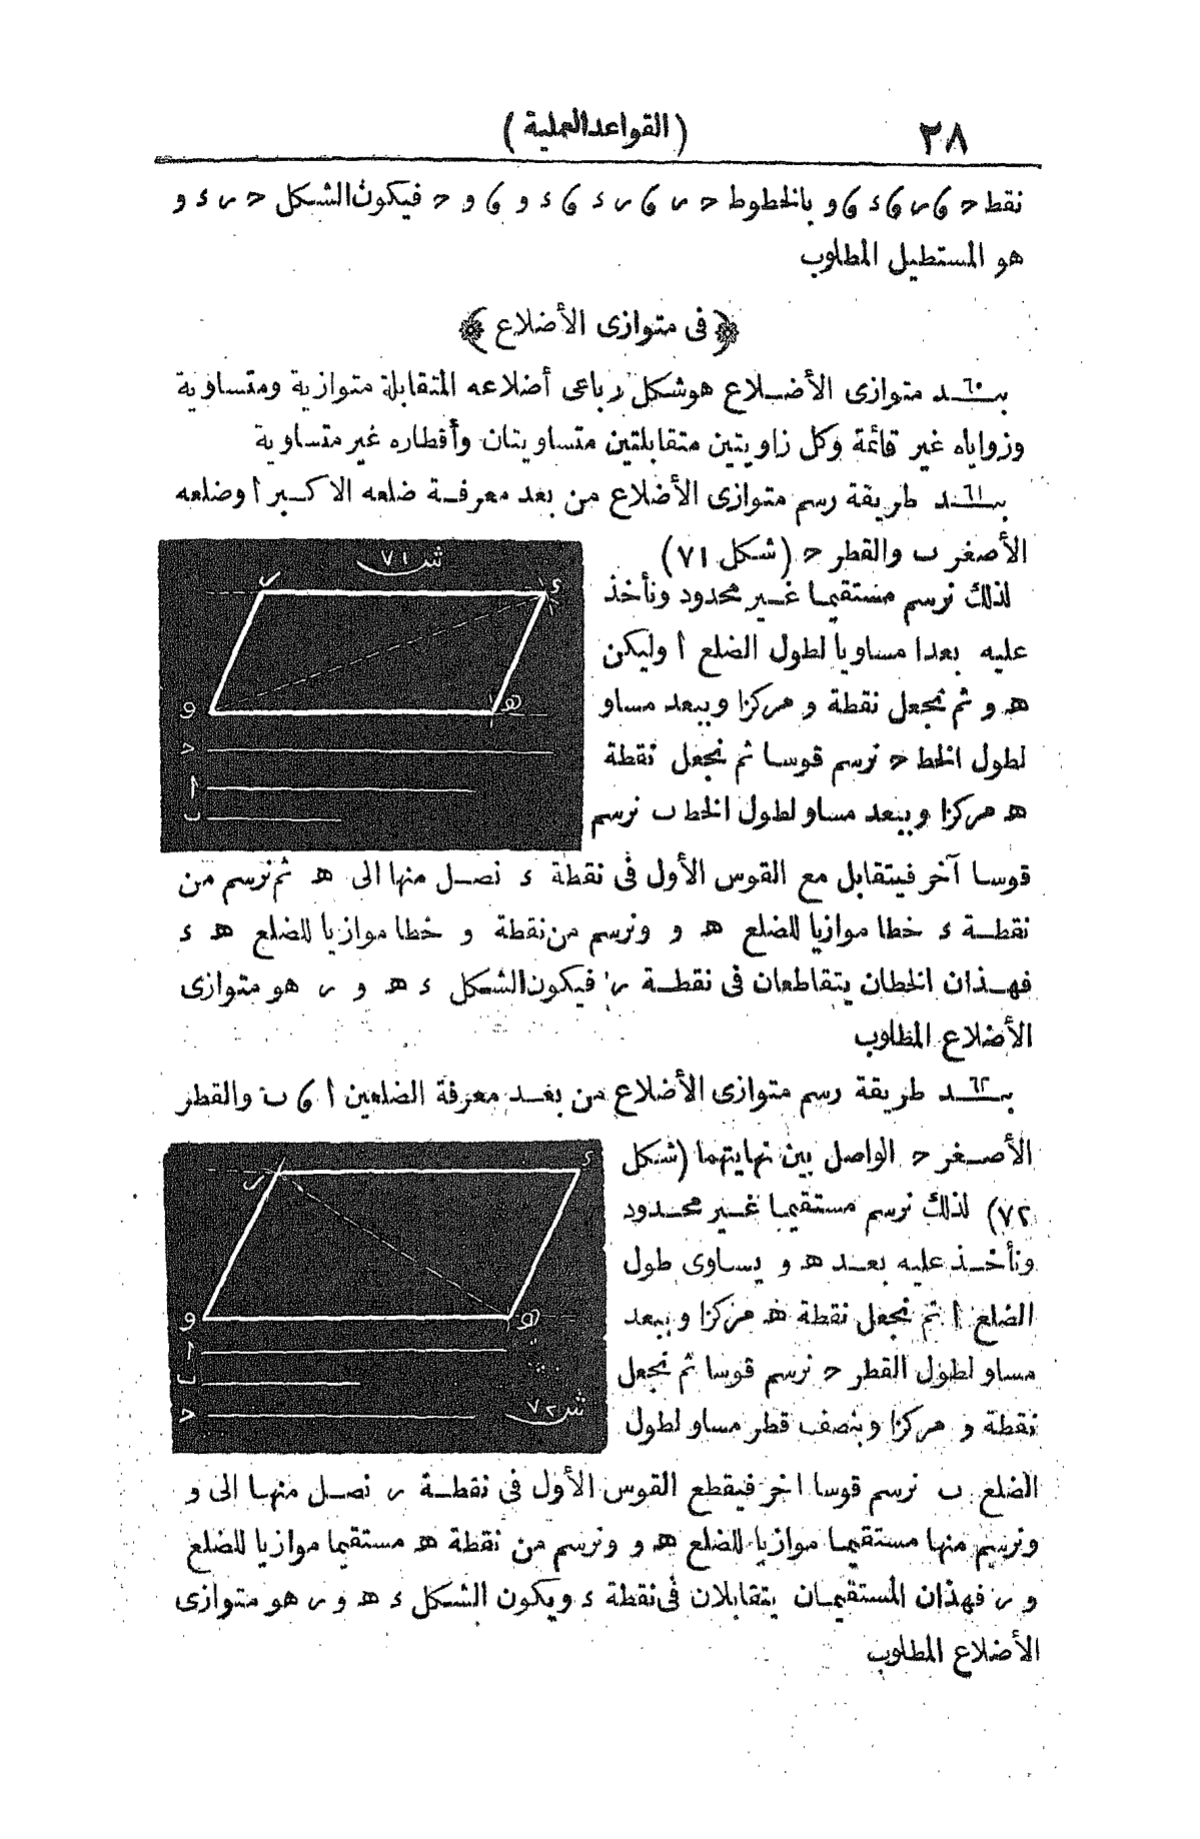 ٢٨
(القواعد العملية)
نقط ح و ر و ء و و بالخطوط ح ر و ر ء و ء و و و ح فيكون الشكل ح ر ء و
هو المستطيل المطلوب
﴿فى متوازى الأضلاع﴾
بنــ٦٠ــد متوازى الأضلاع هو شكل رباعى أضلاعه المتقابلة متوازية ومتساوية
وزواياه غير قائمة وكل زاويتين متقابلتين متساويتان وأقطاره غير متساوية
بنــ٦١ــد طريقة رسم متوازى الأضلاع من بعد معرفة ضلعه الاكبر ا وضلعه
الأصغر ب والقطر ح (شكل ٧١)
لذلك نرسم مستقيما غير محدود ونأخذ
عليه بعدا مساويا لطول الضلع ا وليكن
هـ و ثم نجعل نقطة و مركزا وببعد مساو
لطول الخط ح نرسم قوسا ثم نجعل نقطة
هـ مركزا وببعد مساو لطول الخط ب نرسم
قوسا آخر فيتقابل مع القوس الأول فى نقطة ء نصل منها الى هـ ثم نرسم من
نقطة ء خطا موازيا للضلع هـ و ونرسم من نقطة و خطا موازيا للضلع هـ ء
فهذان الخطان يتقاطعان فى نقطة ر فيكون الشكل ء هـ و ر هو متوازى
الأضلاع المطلوب
بنــ٦٢ــد طريقة رسم متوازى الأضلاع من بعد معرفة الضلعين ا و ب والقطر
الأصغر ح الواصل بين نهايتهما (شكل
٧٢) لذلك نرسم مستقيما غير محدود
ونأخذ عليه بعد هـ و يساوى طول
الضلع ا ثم نجعل نقطة هـ مركزا وببعد
مساو لطول القطر ح نرسم قوسا ثم نجعل
نقطة و مركزا وبنصف قطر مساو لطول
الضلع ب نرسم قوسا اخر فيقطع القوس الأول فى نقطة ر نصل منها الى و
ونرسم منها مستقيما موازيا للضلع هـ و ونرسم من نقطة هـ مستقيما موازيا للضلع
و ر فهذان المستقيمان يتقابلان فى نقطة ء ويكون الشكل ء هـ و ر هو متوازى
الأضلاع المطلوب
ش ٧١
ر
ء
و
هـ
ح
ا
ب
ر
ء
و
هـ
ا
ب
ح
ش ٧٢